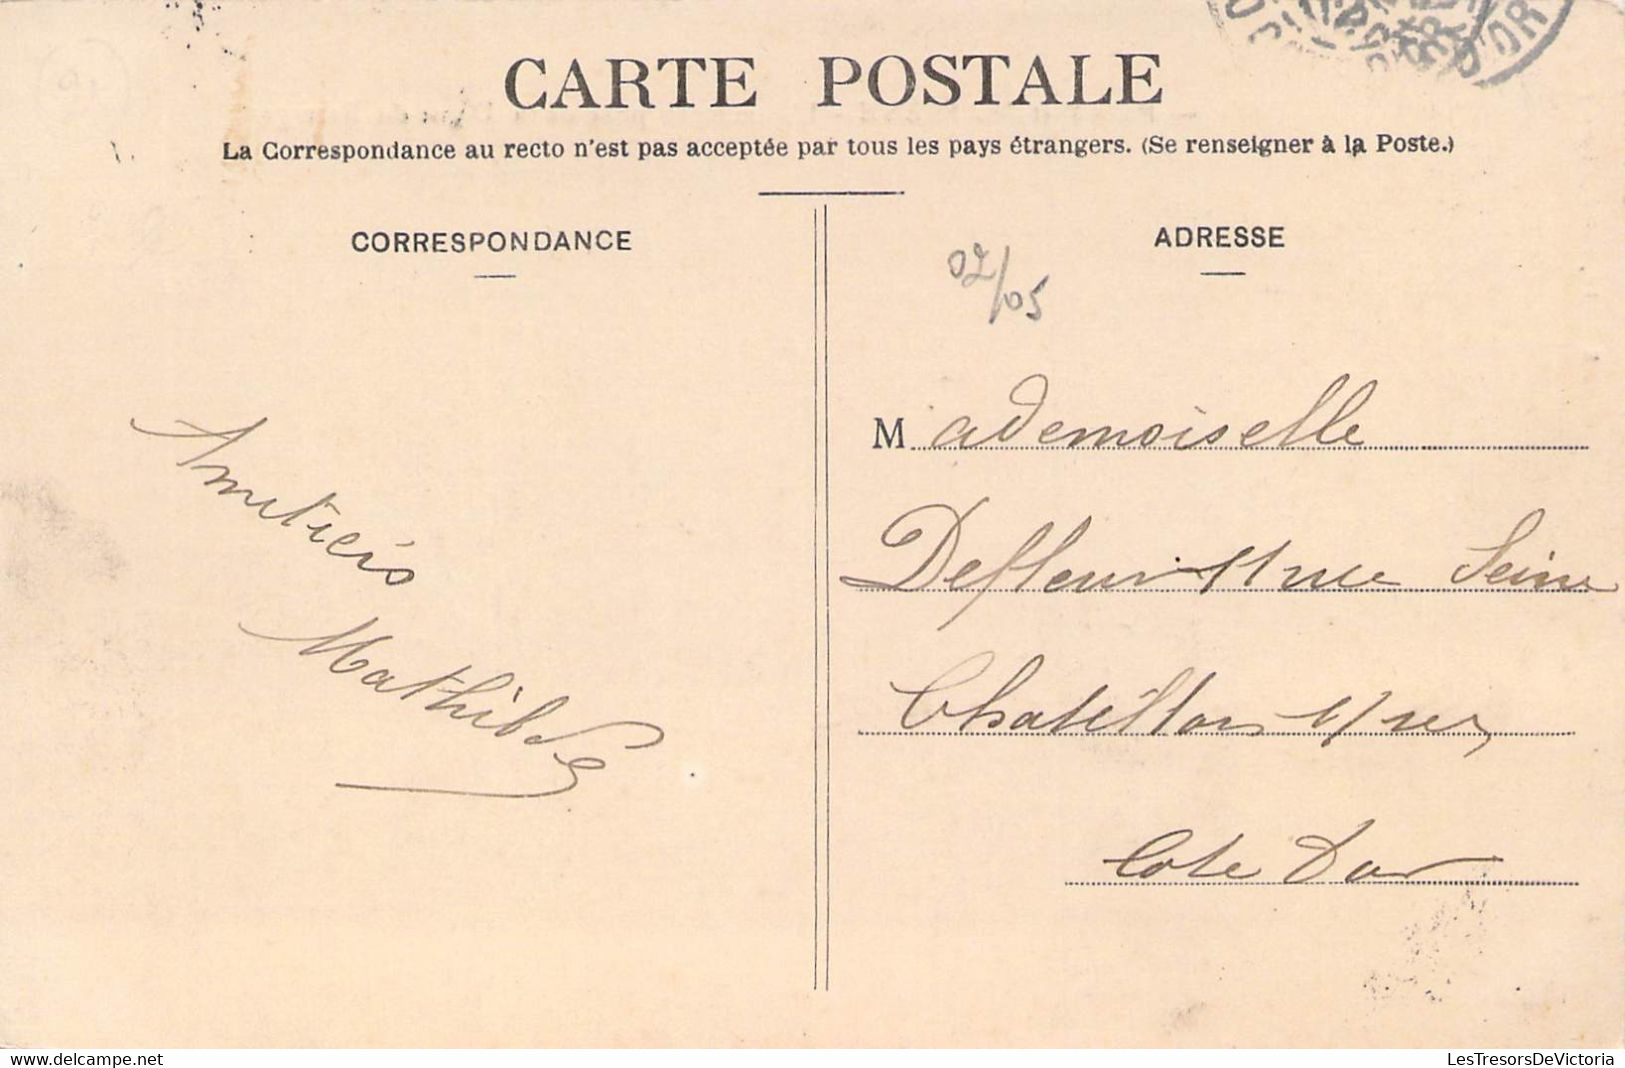 CARTE POSTALE
La Correspondance au recto n'est pas acceptée par tous les pays étrangers. (Se renseigner à la Poste.)
CORRESPONDANCE
Amitiés
Mathilde
ADRESSE
02/05
Mademoiselle
Defleur 11 rue Seine
Chatillon s/
Cote Dor
D'OR
delcampe.net
LesTresorsDeVictoria